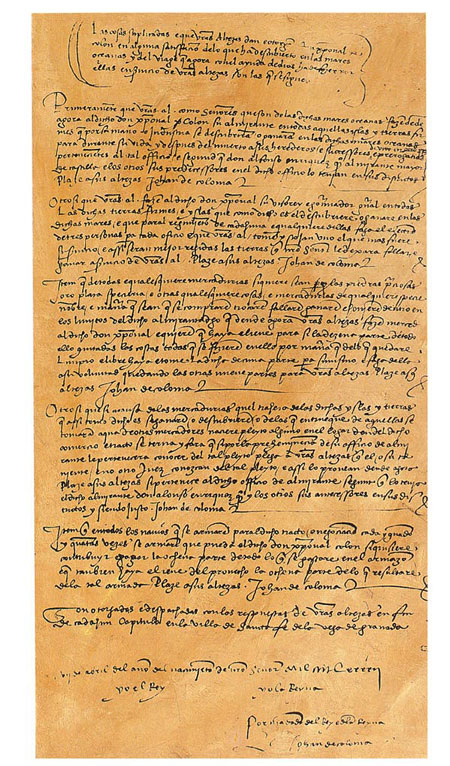 Las cosas suplicadas e que vras altezas dan e otorgan a don xpoual
de colon en alguna satisfacion delo que ha descubierto en las mares
oceanas y del viage que agora con el ayuda de dios ha de fazer por
ellas en seruicio de vras altezas son las que se siguen
Primeramente que vras al. como Señores que son delas dichas mares oceanas fazen dende
agora al dicho don xpoual Colon su almirante en todas aquellas yslas y tierras fir
mes que por su mano o industria se descubriran o ganaran en las dichas mares oceanas
para durante su vida y despues del muerto a sus herederos e successores
pertenecientes al tal officio e segund que don alfonso enrriquez
de castilla e los otros sus predecessores en el dicho officio lo tenian en sus districtos
Plaze a sus altezas Johan de coloma
Otrosi que vras al. fazen al dicho don xpoual su visorey e gouernador general en todas
las dichas tierras firmes e yslas que como dicho es el descubriere o ganare en las
dichas mares, e que para el regimiento de cada una e qualquiere dellas faga el eleccion
de tres personas para cada oficio e que vras al. tomen y scojan uno el que mas fuere
su seruicio, e assi seran mejor regidas las tierras que nro Señor le dexara fallar e
ganar a seruicio de vras al. Plaze a sus altezas Johan de coloma
Item que de todas e qualesquiere mercadurias siquiere sean perlas piedras preciosas
oro plata specieria e otras qualesquiere cosas e mercadurias de qualquiere specie
nombre e manera que sean que se compraren trocaren fallaren ganaren e houieren dentro en
los limites del dicho almirantadgo que dende agora vras altezas fazen merced
al dicho don xpoual e quieren que haya e lieue para si la dezena parte de todo
ello quitadas las costas todas que se fizieren en ello por manera que delo que quedare
limpio e libre haya e tome la dicha decima parte para si mismo e faga dello
a su voluntad quedando las otras nueue partes para vras altezas. Plaze a sus
altezas Johan de coloma
Otrosi que si a causa delas mercadurias quel trahera delas dichas yslas y tierras
que assi como dicho es se ganaren o descubrieren o delas que en trueque de aquellas se
tomaran aqua de otros mercadores naciere pleyto alguno en el logar don del dicho
comercio e tracto se terna y fara que si por la preheminencia de su officio de almi
rante le pertenecera conocer del tal pleyto plega a vras altezas que el o su te
niente e no otro Juez conozcan del tal pleyto, e assi lo prouean dende agora
Plaze a sus altezas si pertenece al dicho officio de almirante segunt que lo tenia
el dicho almirante don alonso enrriquez y los otros sus antecessores en sus dis
trictos y siendo justo. Johan de coloma
Item que en todos los nauios que se armaren para el dicho tracto e negociacion cada y quando
y quantas vezes se armaren que pueda el dicho don xpoual colon si quisiere
contribuyr e pagar la ochena parte de todo lo que se gastare en el armazon
e que tambien haya e lieue del prouecho la ochena parte delo que resultare
dela tal armada Plaze a sus altezas. Johan de coloma
Son otorgadas e despachadas con las respuestas de vras altezas en fin
de cada un capitulo en la villa de sancta fe dela vega de granada
de abril del año del nacimiento de nro Señor Mil
yo el Rey
yo la Reyna
Por mandado del Rey e dela Reyna
Johan de coloma